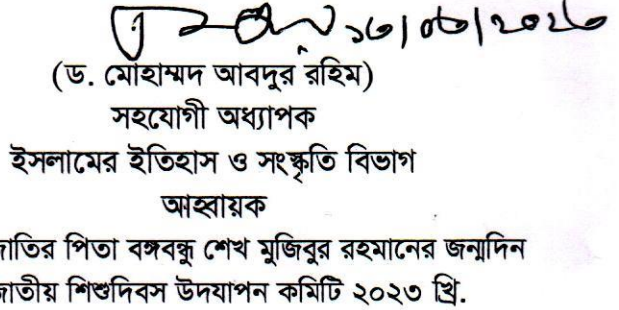 ১৬/০৩/২০২৩
(ড. মোহাম্মদ আবদুর রহিম)
সহযোগী অধ্যাপক
ইসলামের ইতিহাস ও সংস্কৃতি বিভাগ
আহ্বায়ক
জাতির পিতা বঙ্গবন্ধু শেখ মুজিবুর রহমানের জন্মদিন
জাতীয় শিশুদিবস উদযাপন কমিটি ২০২৩ খ্রি.